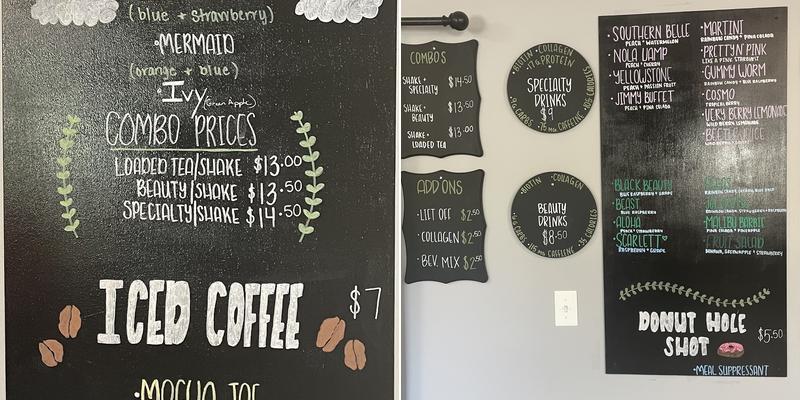 (blue + strawberry)
·MERMAID
(orange + blue)
·Ivy (Green Apple)
COMBO PRICES
LOADED TEA/SHAKE $13.00
BEAUTY/SHAKE $13.50
SPECIALTY/SHAKE $14.50
ICED COFFEE $7
·MOCHA JOE
COMBO'S
SHAKE + SPECIALTY $14.50
SHAKE + BEAUTY $13.50
SHAKE + LOADED TEA $13.00
ADD ONS
·LIFT OFF $2.50
·COLLAGEN $2.50
·BEV. MIX $2.50
·BIOTIN ·COLLAGEN
SPECIALTY
DRINKS
$9
·BIOTIN ·COLLAGEN
BEAUTY
DRINKS
$8.50
·SOUTHERN BELLE
PEACH + WATERMELON
·NOLA VAMP
PEACH + CHERRY
·YELLOWSTONE
PEACH + PASSION FRUIT
·JIMMY BUFFET
PEACH + PINA COLADA
·MARTINI
RAINBOW CANDY + PINA COLADA
·PRETTY N' PINK
LIKE A PINK STARBURST
·GUMMY WORM
RAINBOW CANDY + BLUE RASPBERRY
·COSMO
TROPICAL BERRY
·VERY BERRY LEMONADE
WILD BERRY LEMONADE
·BEETLEJUICE
·BLACK BEAUTY
BLUE RASPBERRY + GRAPE
·BEAST
BLUE RASPBERRY
·ALOHA
PEACH + STRAWBERRY
·SCARLETT
RASPBERRY + GRAPE
·MALIBU BARBIE
PINA COLADA + PINEAPPLE
·FRUIT SALAD
BANANA, GREEN APPLE + STRAWBERRY
DONUT HOLE
SHOT $5.50
·MEAL SUPPRESSANT